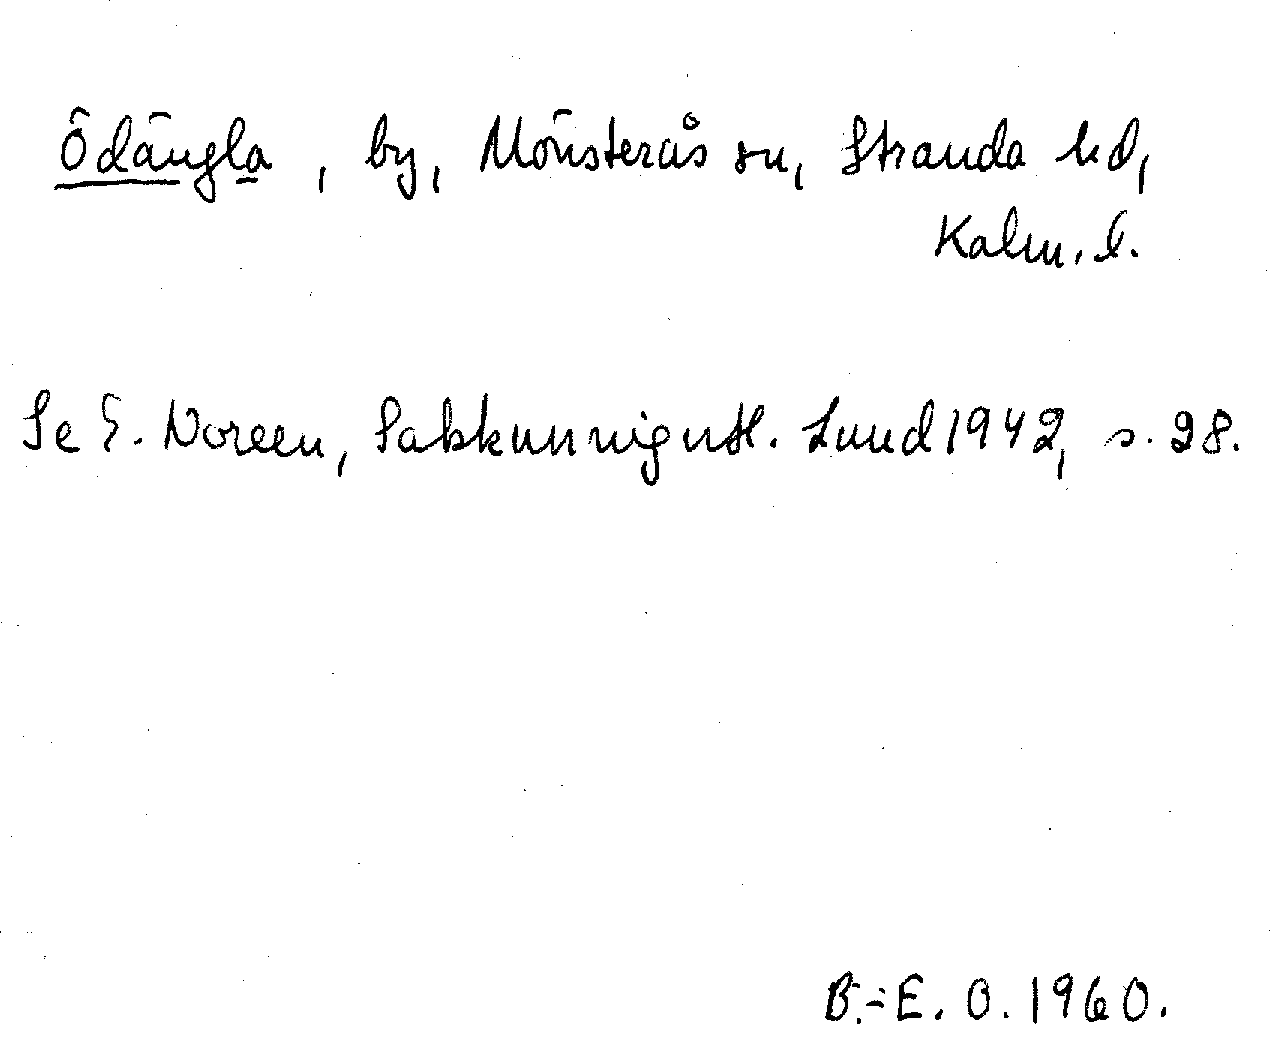 Ödängla, by, Mönsterås sn, Stranda hd,
Kalm. l.
Se E. Noreen, Sakkunnigutl. Lund 1942, s. 28.
B.-E. O. 1960.